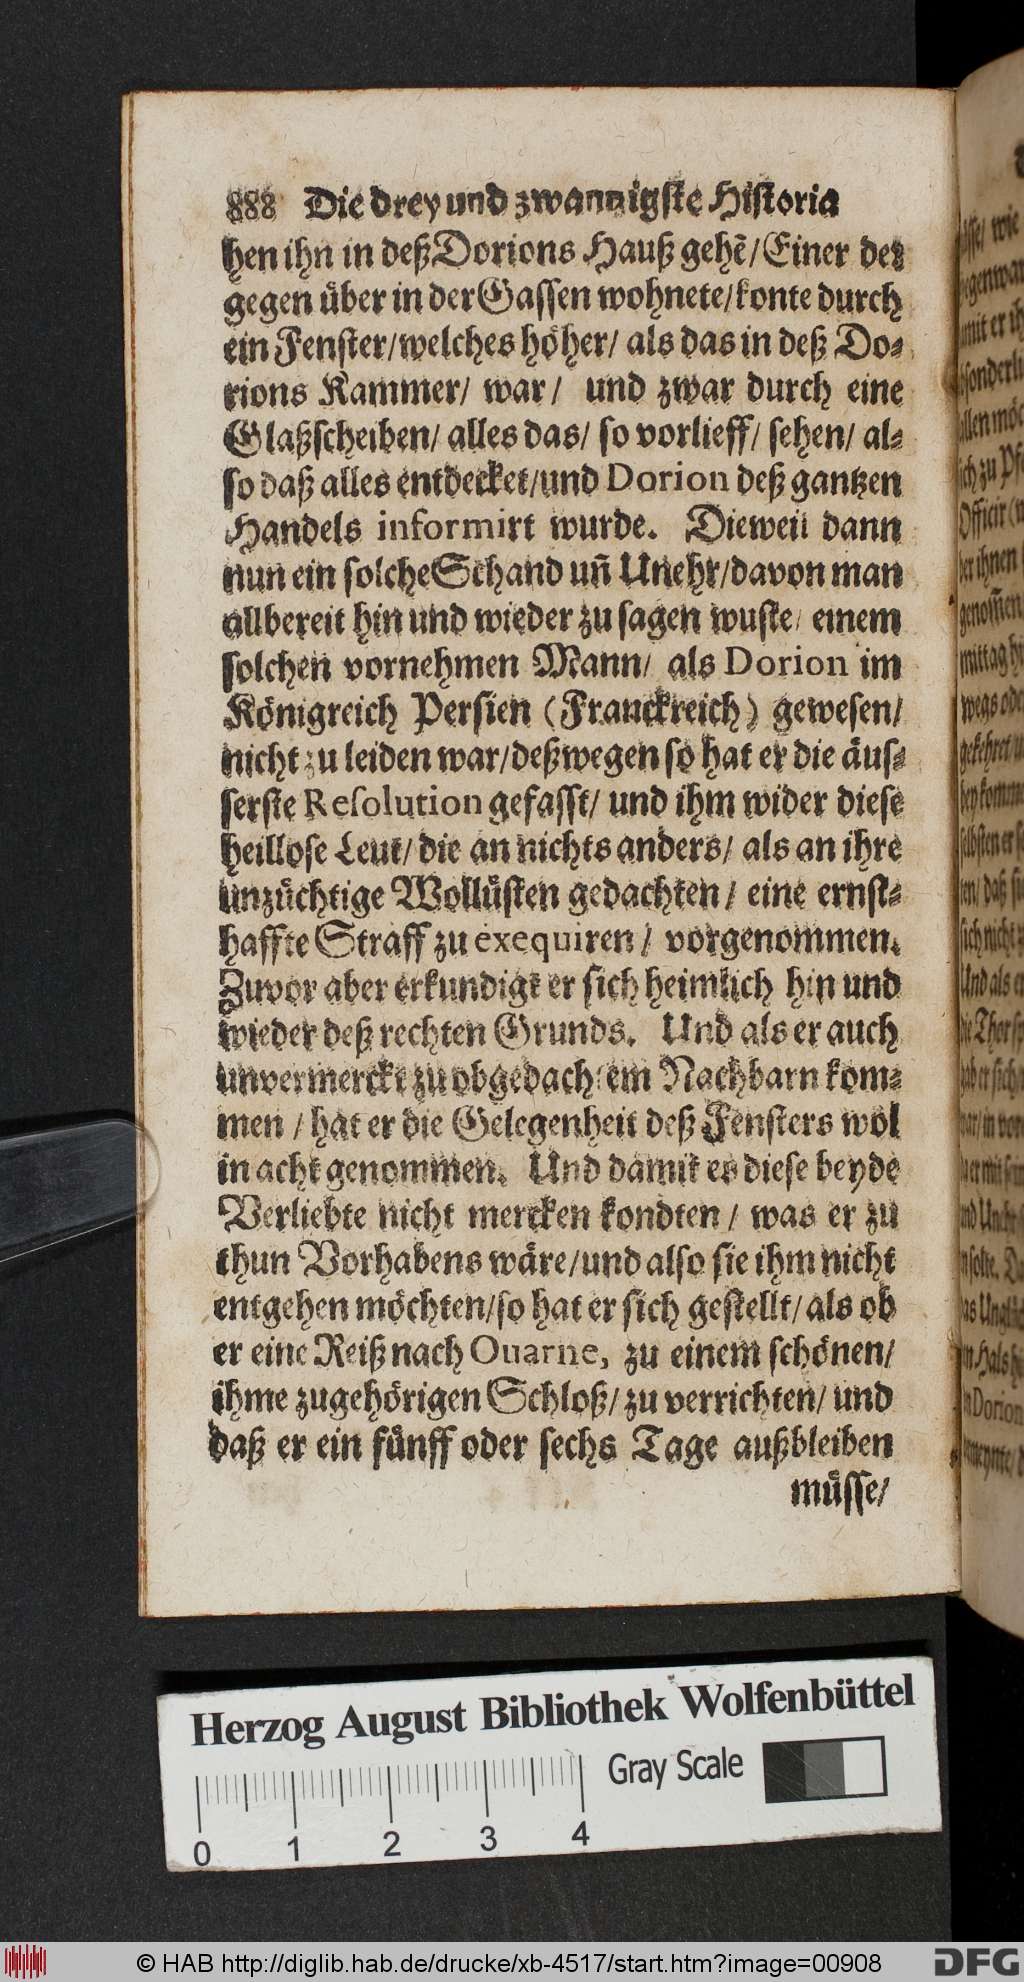 888 Die drey und zwannigste Historia
hen ihn in deß Dorions Hauß gehẽ/ Einer der
gegen über in der Gassen wohnete/ konte durch
ein Fenster/ welches höher/ als das in deß Do-
rions Kammer/ war/ und zwar durch eine
Glaßscheiben/ alles das/ so vorlieff/ sehen/ al-
so daß alles entdecket/ und Dorion deß gantzen
Handels informirt wurde. Dieweil dann
nun ein solche Schand uñ Unehr/ davon man
allbereit hin und wieder zu sagen wuste/ einem
solchen vornehmen Mann/ als Dorion im
Königreich Persien (Franckreich) gewesen/
nicht zu leiden war/ deßwegen so hat er die äus-
serste Resolution gefasst/ und ihm wider diese
heillose Leut/ die an nichts anders/ als an ihre
unzüchtige Wollüsten gedachten/ eine ernst-
haffte Straff zu exequiren/ vorgenommen.
Zuvor aber erkundigt er sich heimlich hin und
wieder deß rechten Grunds. Und als er auch
unvermerckt zu obgedachtem Nachbarn kom-
men/ hat er die Gelegenheit deß Fensters wol
in acht genommen. Und damit es diese beyde
Verliebte nicht mercken kondten/ was er zu
thun Vorhabens wäre/ und also sie ihm nicht
entgehen möchten/ so hat er sich gestellt/ als ob
er eine Reiß nach Ouarne, zu einem schönen/
ihme zugehörigen Schloß/ zu verrichten/ und
daß er ein fünff oder sechs Tage außbleiben
müsse/
Herzog August Bibliothek Wolfenbüttel
Gray Scale
0 1 2 3 4
© HAB http://diglib.hab.de/drucke/xb-4517/start.htm?image=00908
DFG